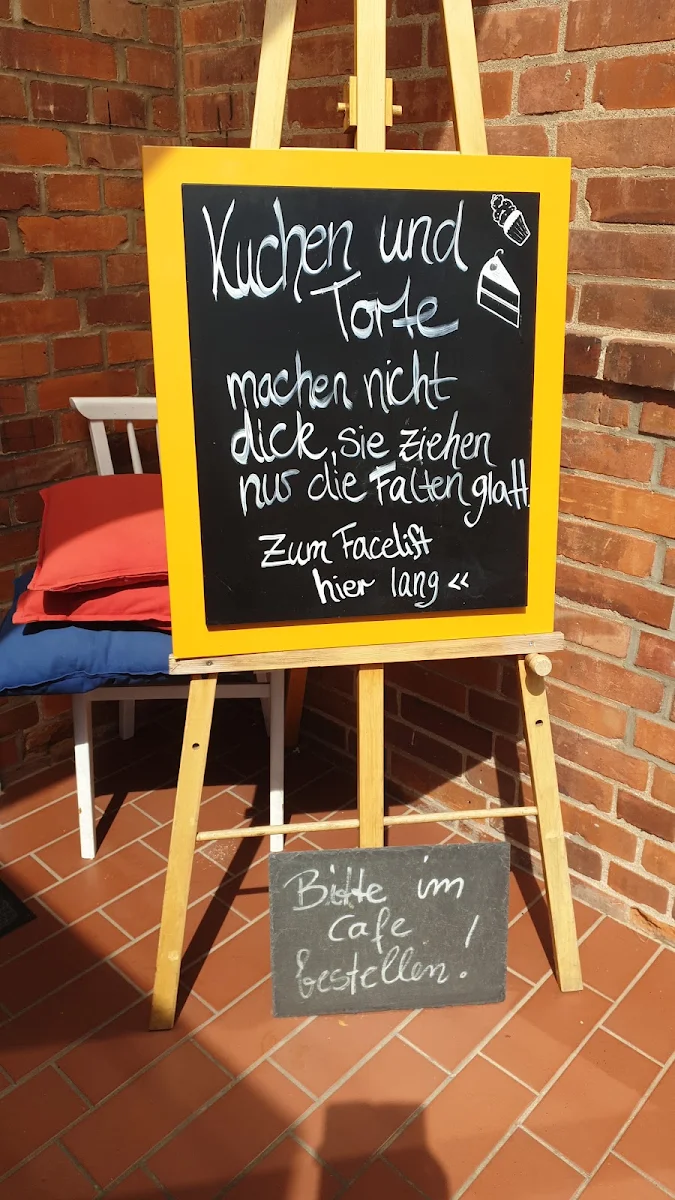 Kuchen und
Torte
machen nicht
dick, sie ziehen
nur die Falten glatt
Zum Facelift
hier lang <<
Bitte im
Cafe
bestellen!